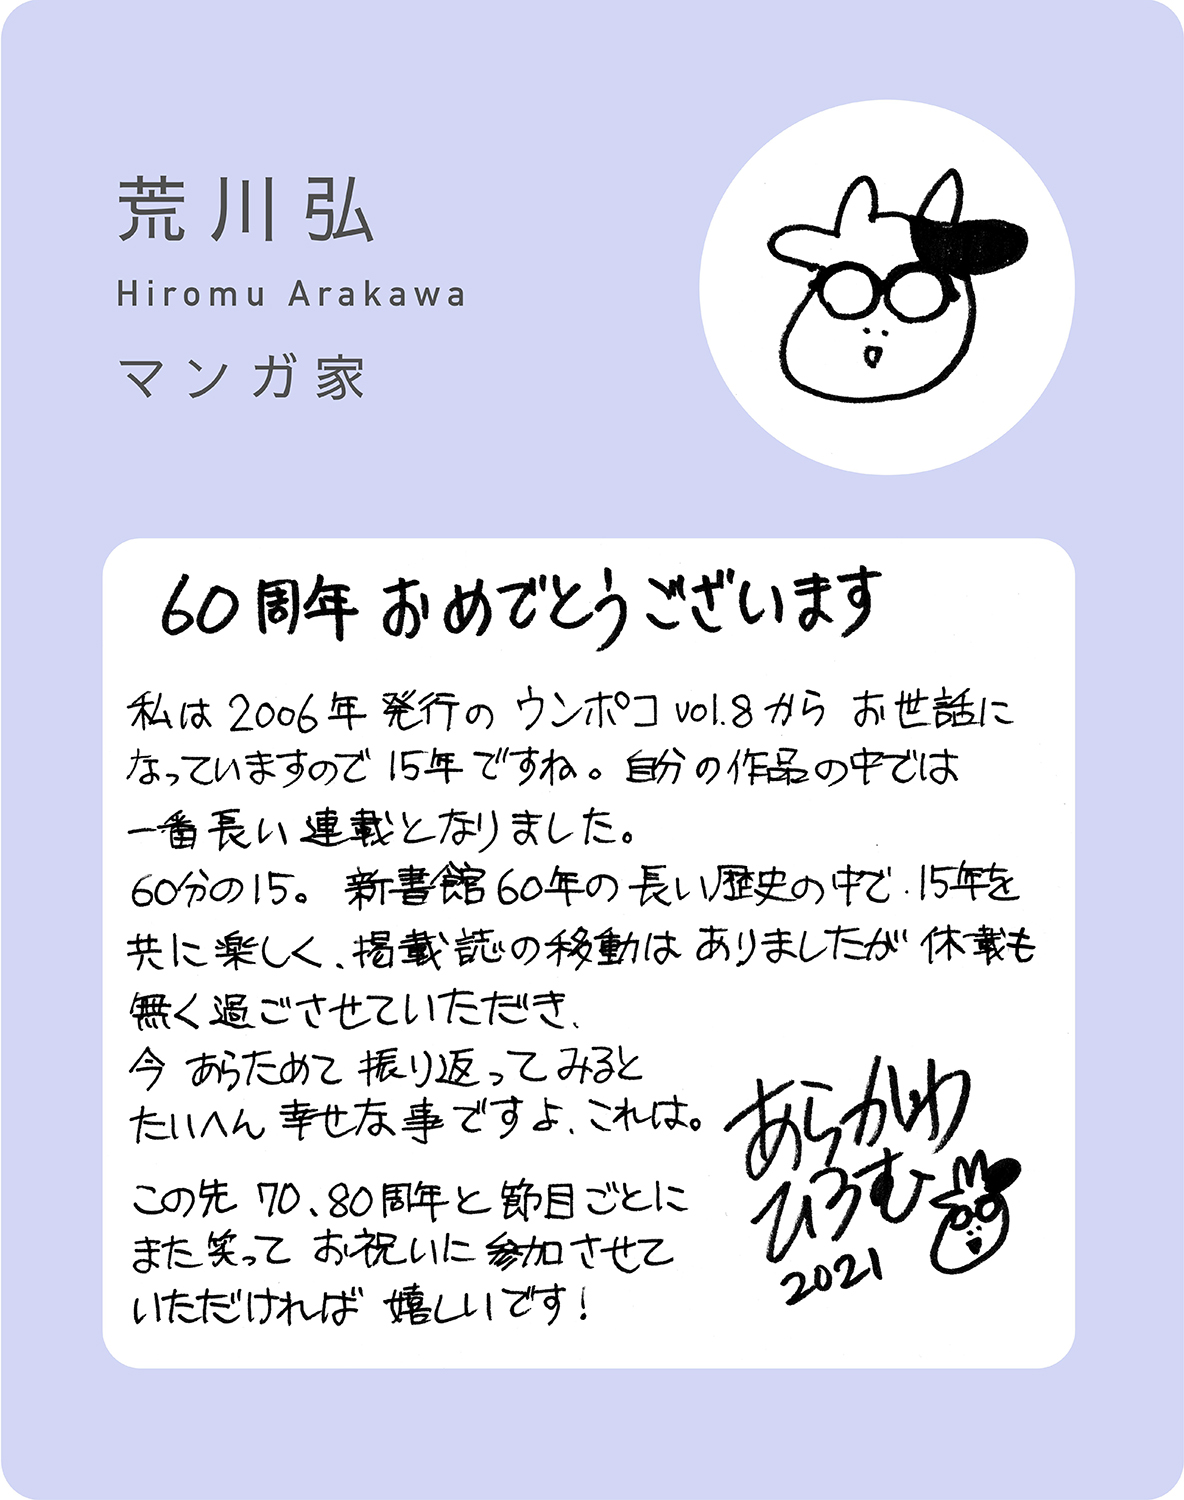 荒川弘
Hiromu Arakawa
マンガ家
60周年おめでとうございます
私は2006年発行のウンポコvol.8からお世話に
なっていますので15年ですね。自分の作品の中では
一番長い連載となりました。
60分の15。新書館60年の長い歴史の中で、15年を
共に楽しく、掲載誌の移動はありましたが休載も
無く過ごさせていただき、
今あらためて振り返ってみると
たいへん幸せな事ですよ、これは。
この先70、80周年と節目ごとに
また笑ってお祝いに参加させて
いただければ嬉しいです!
あらかわ
ひろむ
2021